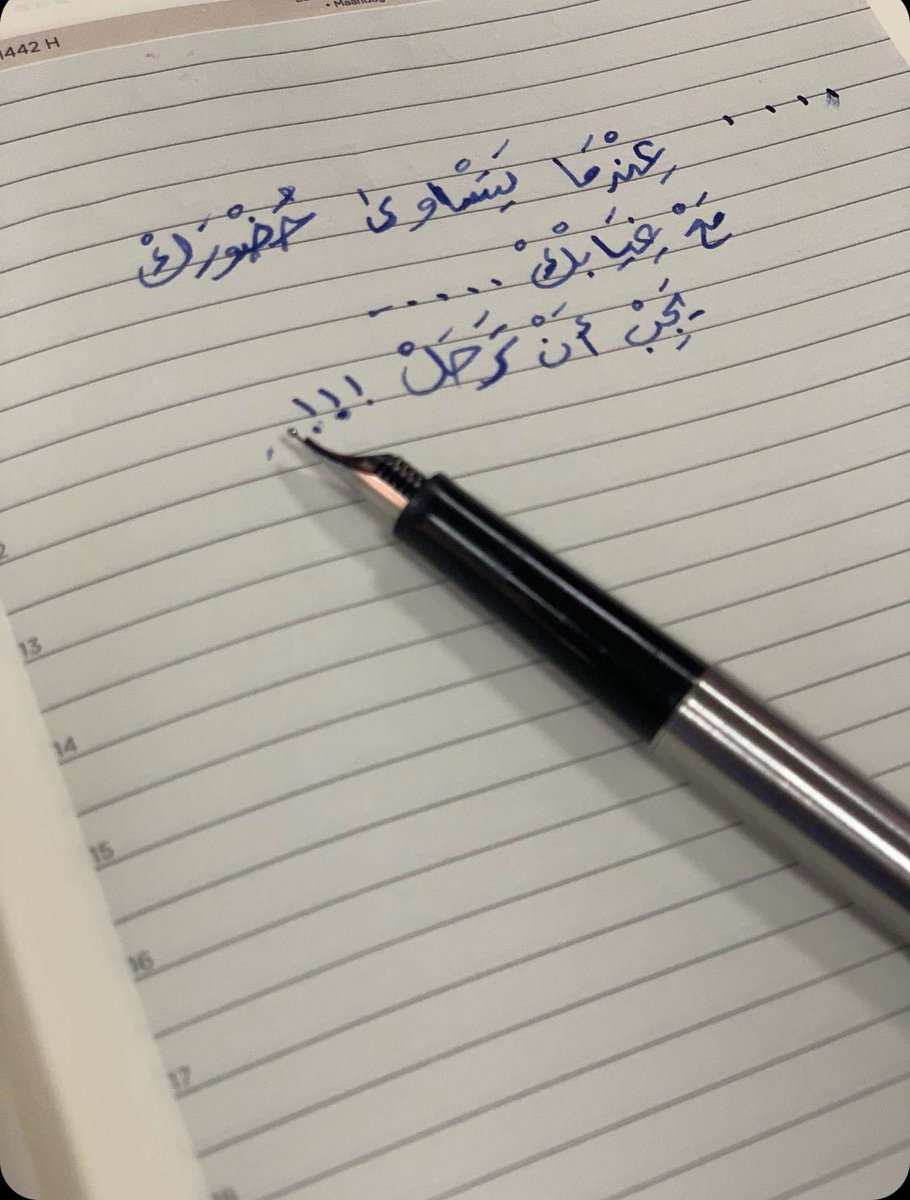 1442 H
• Maandag
.... عِنْدَمَا يَتَسْاوىٰ حُضْوْرَكْ
مَعَْ غِيَابْكْ .....
يَجِبْ أَنَْ تَرَحَلْ !!!
13
14
15
16
17
18